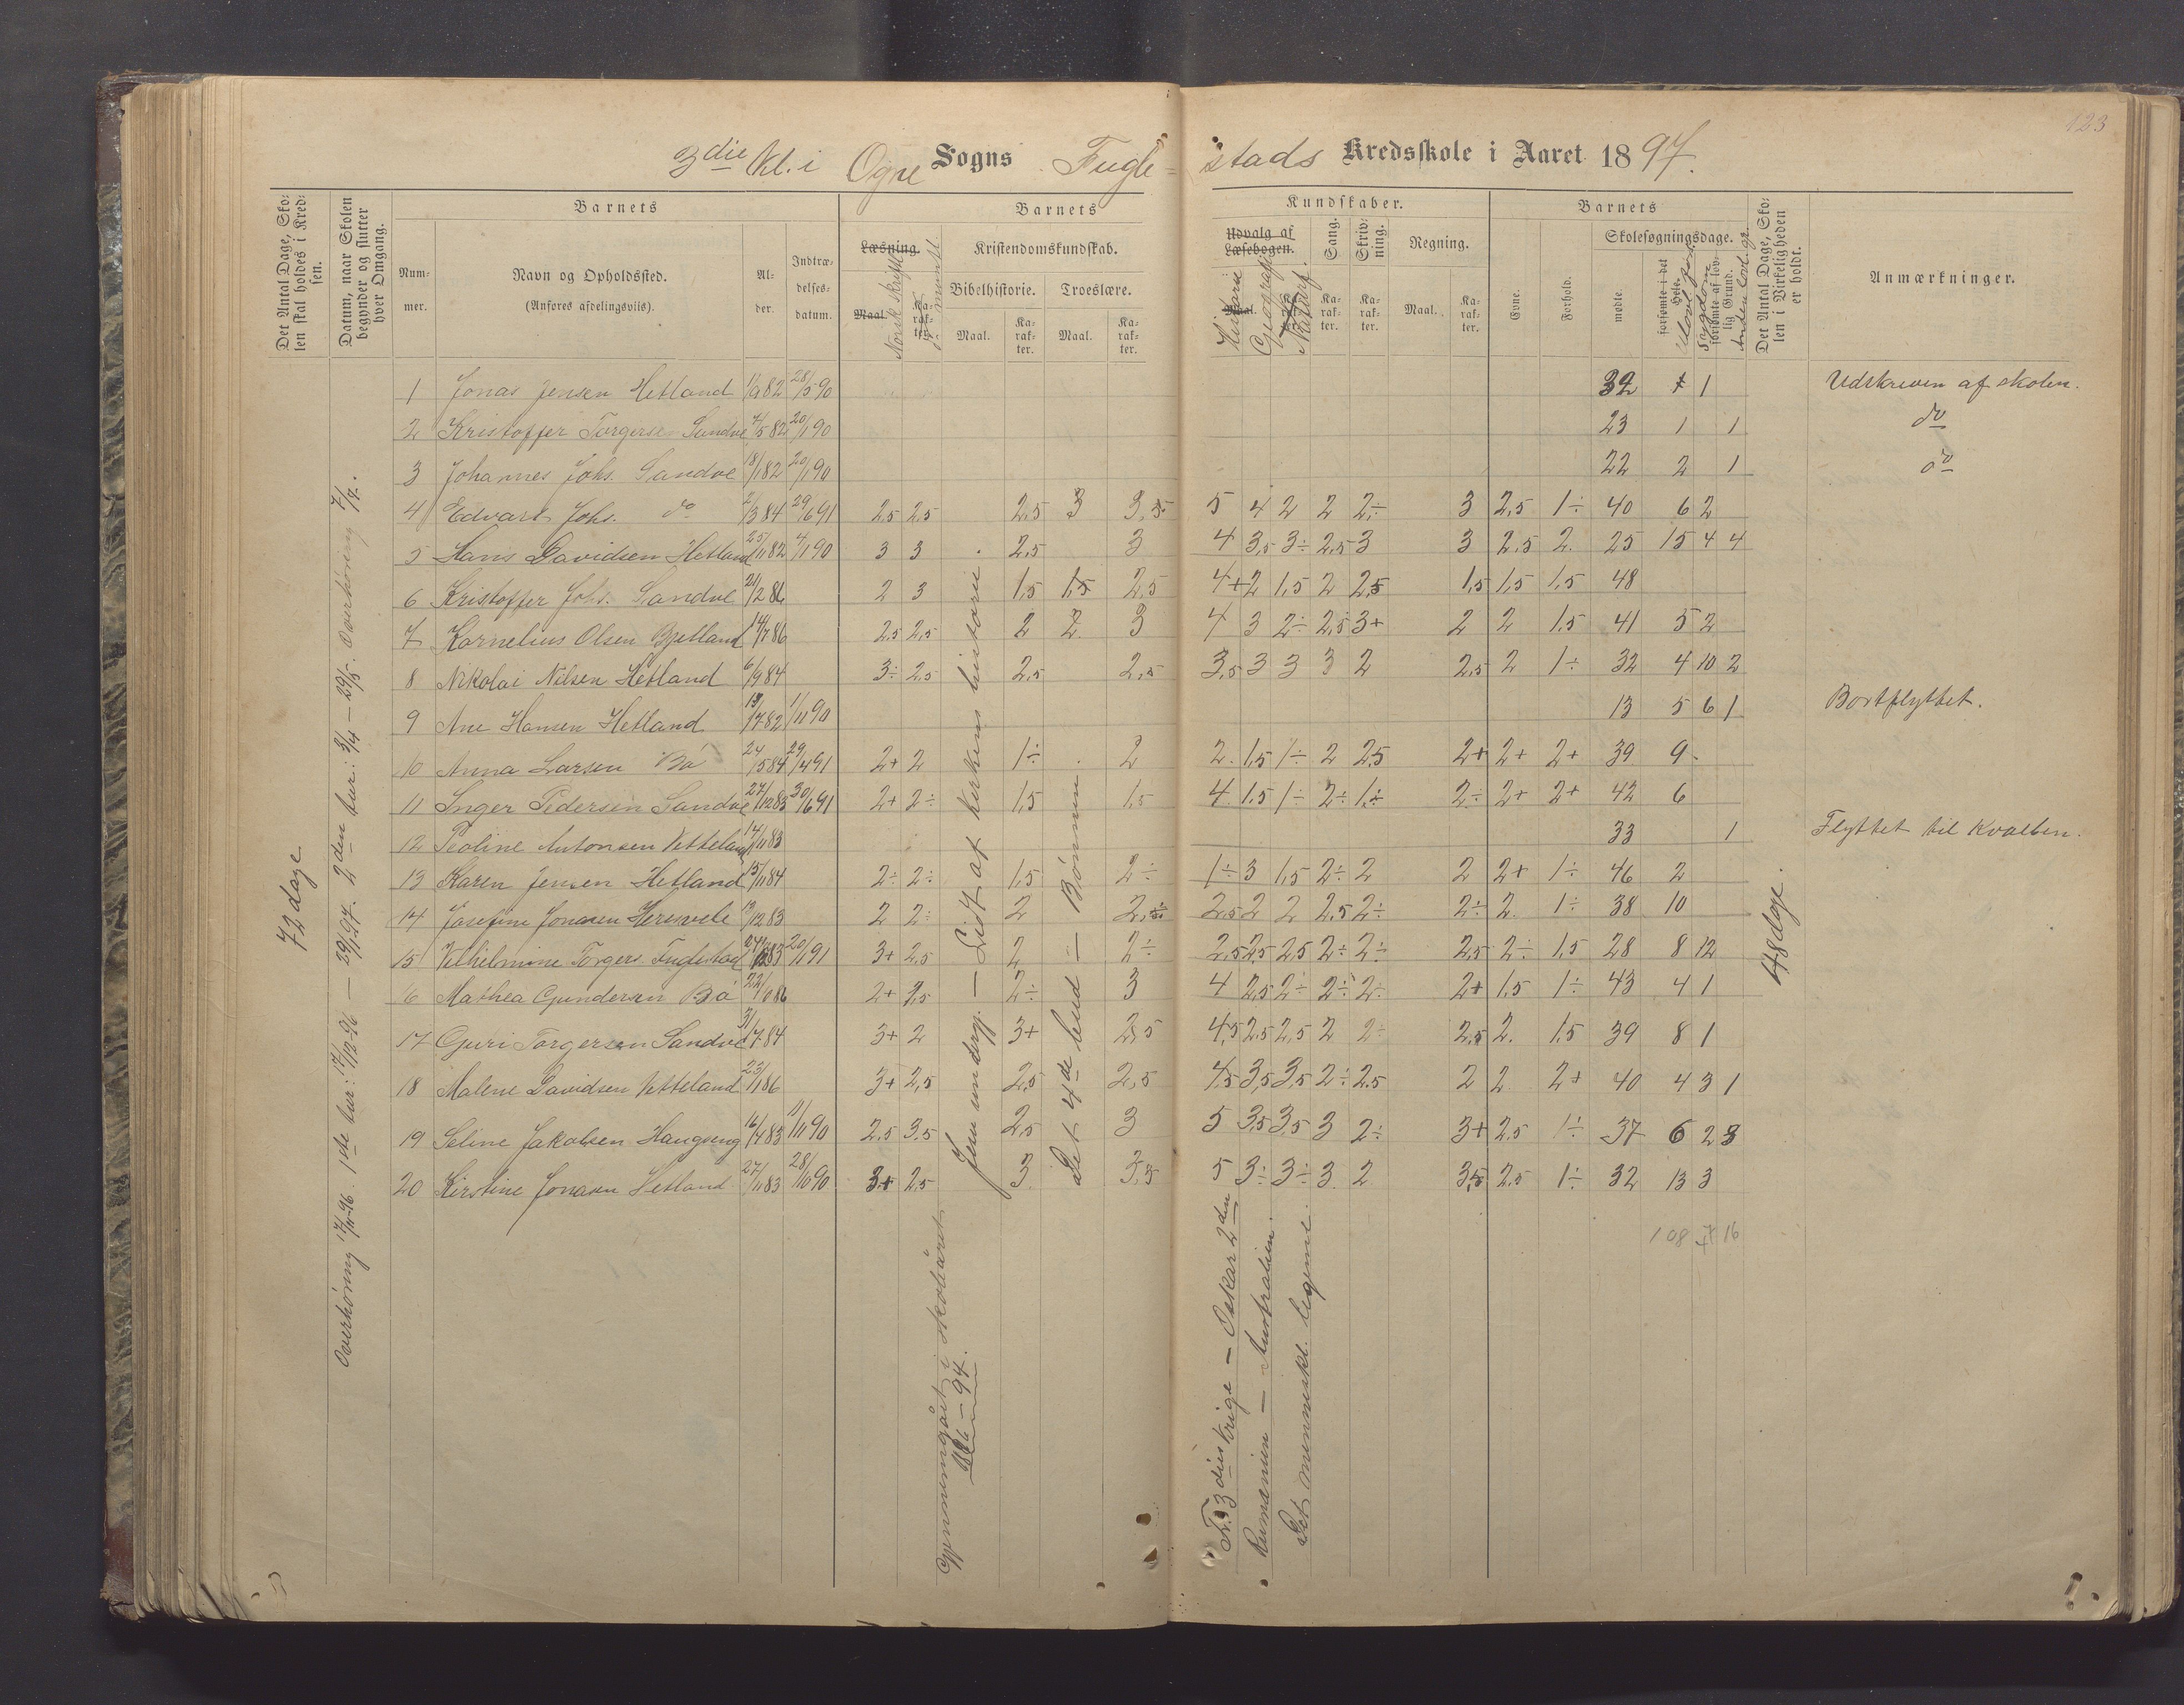 123
3die kl. i Ogne Sogns Fugle=stads Kredsskole i Aaret 1897.
Det Antal Dage, Skolen skal holdes i Kredsen.
Datum, naar Skolen begynder og slutter hver Omgang.
Barnets
Nummer.
Navn og Opholdssted.
(Anføres afdelingsviis).
Alder.
Indtrædelsesdatum.
Barnets
Læsning.
Maal.
Karakter.
Norsk skriftl.
do mundtl.
Kristendomskundskab.
Bibelhistorie.
Troeslære.
Maal.
Karakter.
Maal.
Karakter.
Kundskaber.
Udvalg af Læsebogen.
Historie
Geografi
Naturf.
Sang.
Skrivning.
Regning.
Karakter.
Karakter.
Maal.
Karakter.
Barnets
Evne.
Forhold.
Skolesøgningsdage.
mødte.
forsømte i det Hele.
forsømte af lovlig Grund.
Sygdom
Anden lovl. gr.
Det Antal Dage, Skolen i Virkeligheden er holdt.
Anmærkninger.
1 Jonas Jensen Hetland 1/9 82 28/5 90 32 1 Udskreven af skolen.
2 Kristoffer Torgersen Sandve 4/5 82 20/1 90 23 1 1 do
3 Johannes Johs. Sandve 18/1 82 20/1 90 22 2 1 do
4 Edvart Johs. do 2/3 84 29/6 91 2,5 2,5 2,5 3 3,5 5 4 2 2 2÷ 3 2,5 1÷ 40 6 2
5 Hans Davidsen Hetland 25/11 82 4/1 90 3 3 2,5 3 4 3,5 3÷ 2,5 3 3 2,5 2. 25 15 4 4
6 Kristoffer Johs. Sandve 21/2 86 2 3 1,5 1,5 2,5 4+ 2 1,5 2 2,5 1,5 1,5 1,5 48
7 Kornelius Olsen Bjelland 14/7 86 2,5 2,5 2 2. 3 4 3 2÷ 2,5 3+ 2 2 1,5 41 5 2
8 Nikolai Nilsen Hetland 6/9 84 3÷ 2,5 2,5 2,5 3,5 3 3 3 2 2,5 2 1÷ 32 4 10 2
9 Ane Hansen Hetland 13/7 82 1/11 90 13 5 6 1 Bortflyttet.
10 Anna Larsen Bø 24/5 84 29/4 91 2+ 2 1÷ 2 2. 1,5 1÷ 2 2,5 2+ 2+ 2+ 39 9
11 Inger Pedersen Sandve 27/12 83 30/6 91 2+ 2÷ 1,5 1,5 4 1,5 1÷ 2÷ 1÷ 2÷ 2+ 2+ 42 6
12 Peoline Antonsen Vetteland 14/11 83 33 1 Flyttet til Kvalben.
13 Karen Jensen Hetland 15/11 84 2÷ 2÷ 1,5 2÷ 1÷ 3 1,5 2÷ 2 2 2+ 1÷ 46 2
14 Josefine Jonasen Heresvele 19/12 83 2 2÷ 2 2÷ 2,5 2 2 2,5 2÷ 2÷ 2. 1÷ 38 10
15 Vilhelmine Torgers. Fuglestad 83 20/1 91 3+ 2,5 2 2÷ 2,5 2,5 2,5 2÷ 2÷ 2,5 2÷ 1,5 28 8 12
16 Mathea Gundersen Bø 86 2+ 2,5 2÷ 3 4 2,5 2÷ 2÷ 2÷ 2+ 1,5 1÷ 43 4 1
17 Guri Torgersen Sandve 31/7 84 3+ 2 3+ 2,5 4,5 2,5 2,5 2 2÷ 2,5 2. 1,5 39 8 1
18 Malene Davidsen Vetteland 23/11 86 3+ 2,5 2,5 2,5 4,5 3,5 3,5 2÷ 2,5 2 2 2+ 40 4 3 1
19 Seline Jakobsen Haugseng 16/4 83 1/11 90 2,5 3,5 2,5 3 5 3,5 3,5 3 2÷ 3+ 2,5 1÷ 37 6 2 3
20 Kirstine Jonasen Hetland 27/11 83 28/10 90 3+ 2,5 3 3,5 5 3÷ 3÷ 3 2 3,5 2,5 1÷ 32 13 3
108 47 16
72 dage
Overhøring 17/11-96. 1ste tur: 17/12-96 — 29/1-97. 2den tur: 3/4 — 29/5. Overhøring 7/7.
48 dage.
Gjennemgået i skoleåret
96 – 97.
Jesu undergj. — Lidt af kirkens historie.
Det 4de bud — Bønnen
Fr. 3dies krige — Oskar 2den
Rumænien — Australien.
Det menneskl. legeme.